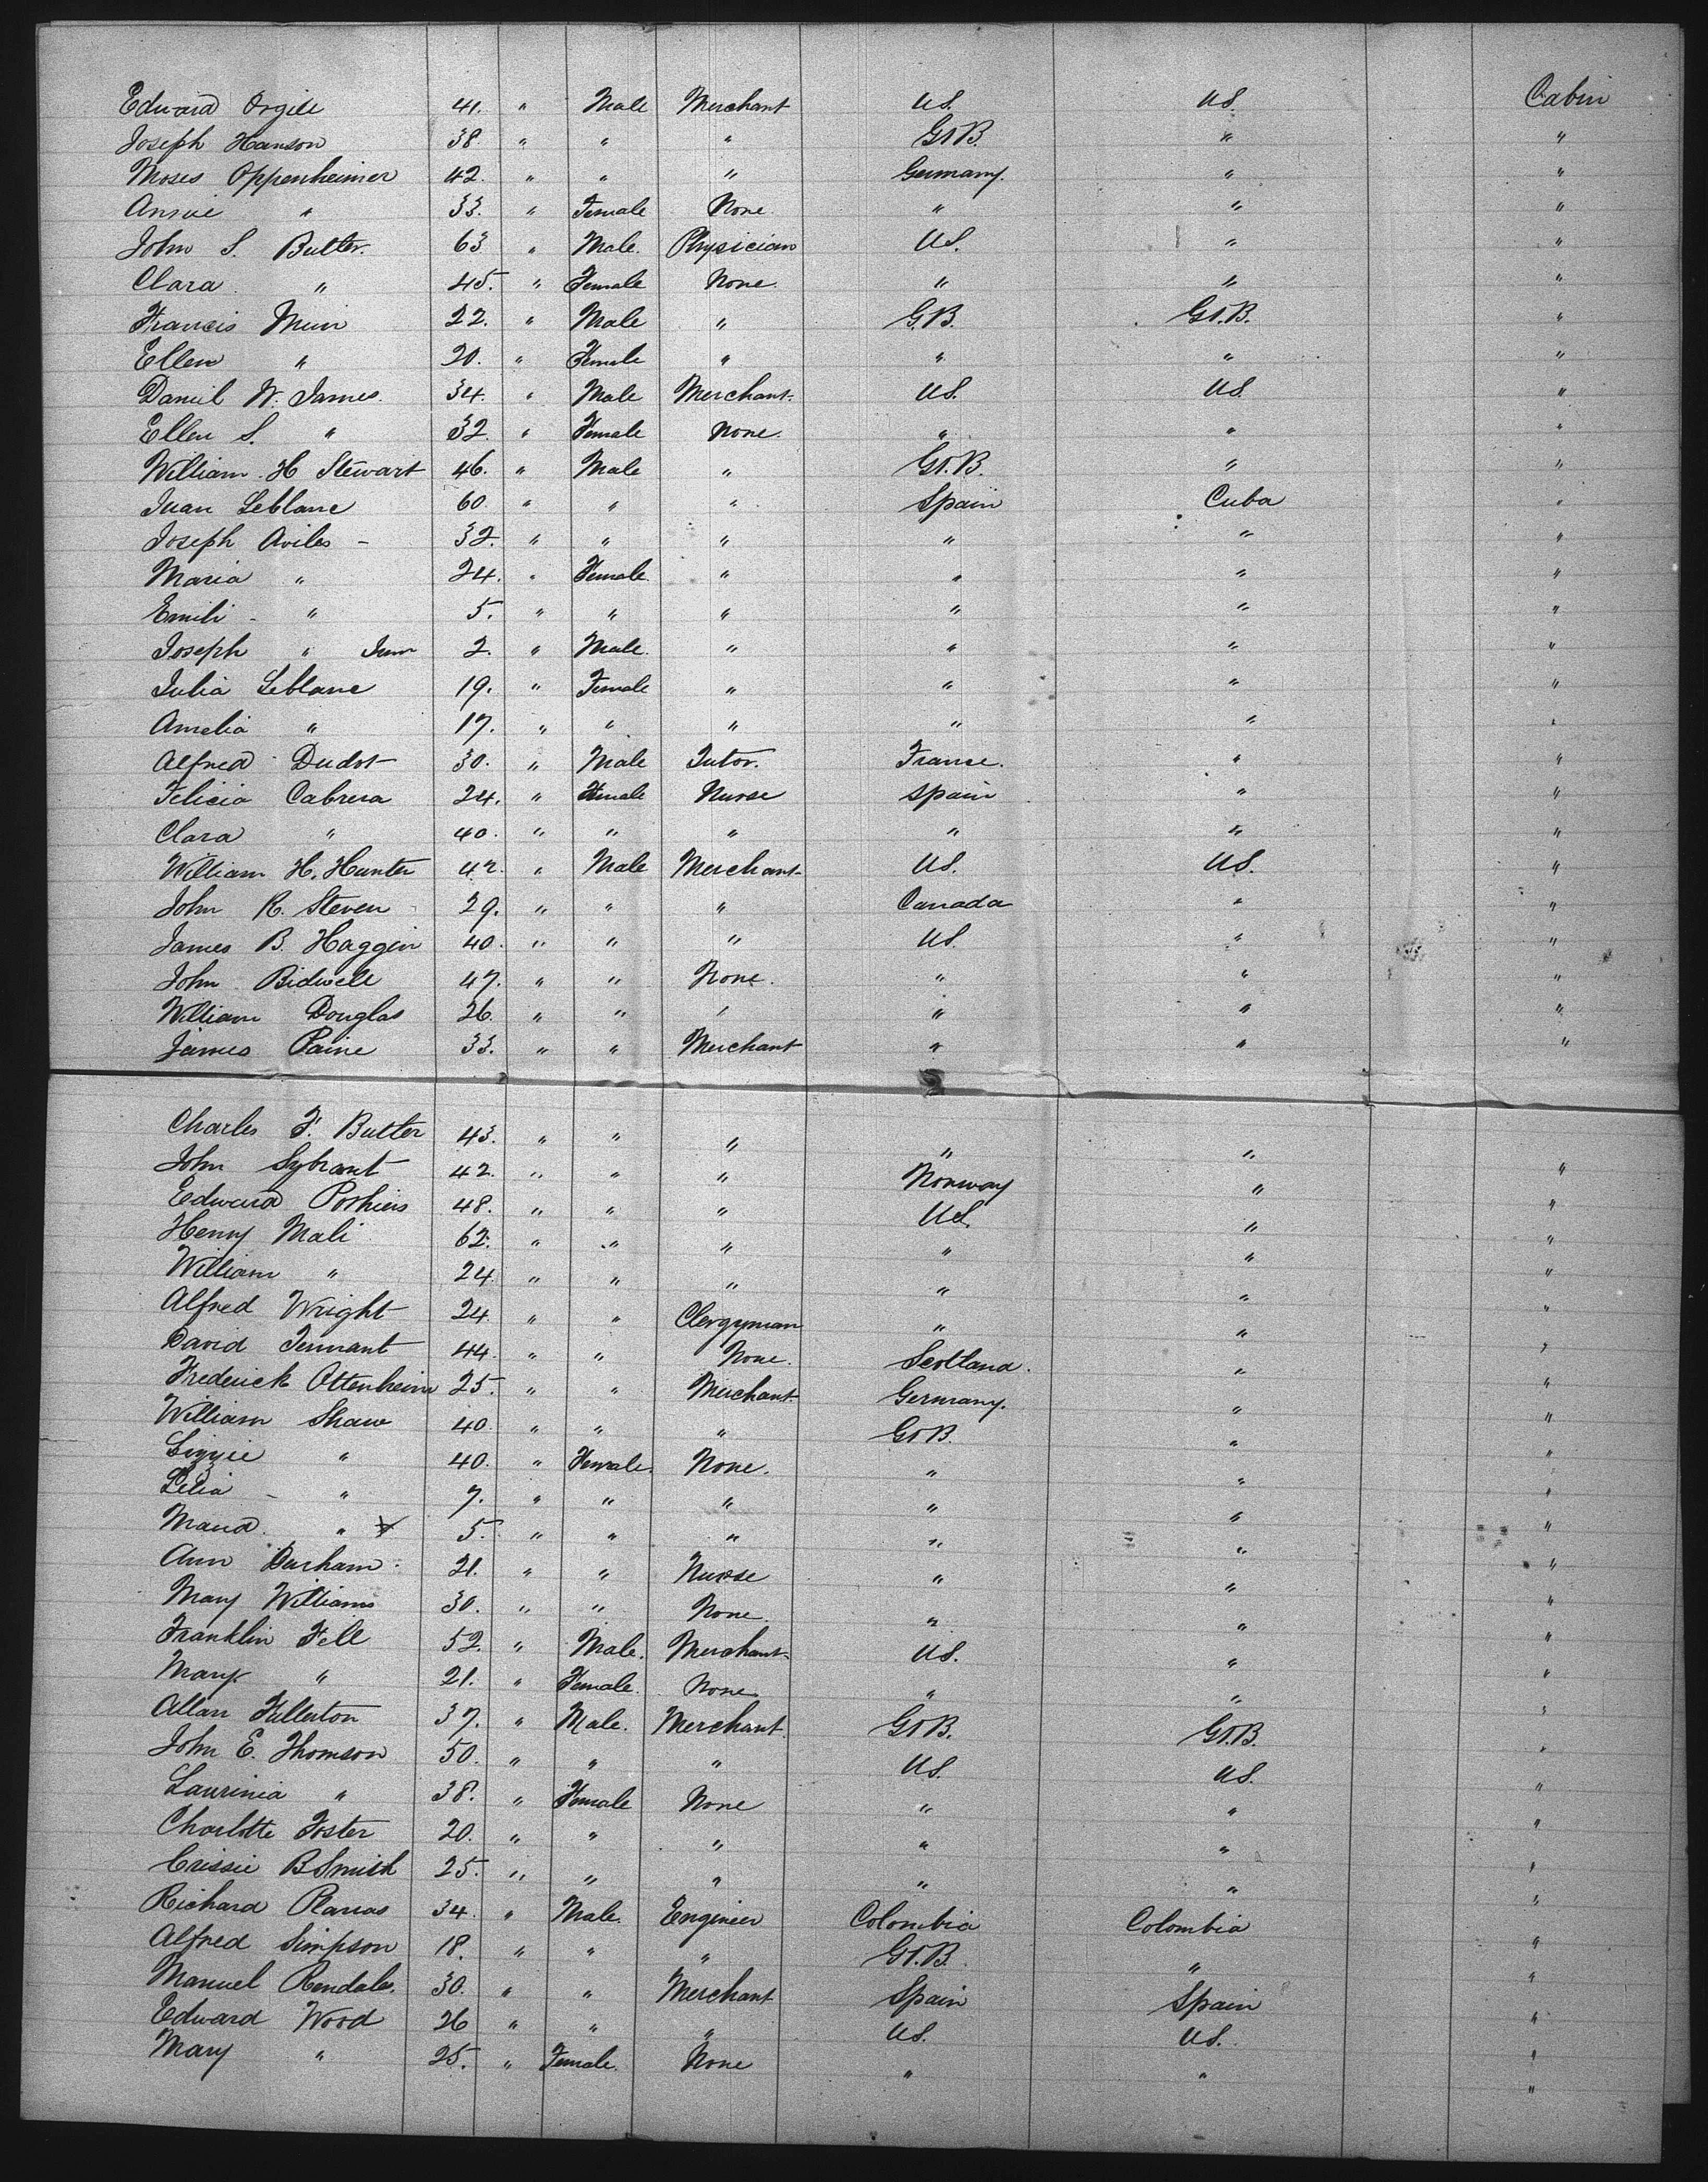 Edward Orgill 41. " Male Merchant US. US. Cabin
Joseph Hanson 38. " " " Gt B. " "
Moses Oppenheimer 42. " " " Germany. " "
Annie " 33. " Female None " " "
John S. Butler. 63 " Male. Physician US. " "
Clara " 45. " Female None. " " "
Francis Muir 22. " Male " G.B. Gt.B. "
Ellen " 20. " Female " " " "
Daniel W. James. 34. " Male Merchant. US. US. "
Ellen S. " 32. " Female None. " " "
William H Stewart 46. " Male " Gt.B. " "
Juan Leblanc 60 " " " Spain Cuba "
Joseph Aviles - 32. " " " " " "
Maria " 24. " Female. " " " "
Emili - " 5. " " " " " "
Joseph " Junr 2. " Male. " " " "
Julia Leblanc 19. " Female " " " "
Amelia " 17. " " " " " "
Alfred Dudot 30. " Male Tutor. France. " "
Felicia Cabrera 24. " Female Nurse Spain " "
Clara " 40. " " " " " "
William H. Hunter 42. " Male Merchant US. US. "
John R. Steven 29. " " " Canada " "
James B. Haggin 40. " " " US. " "
John Bidwell 47. " " None. " " "
William Douglas 26. " " " " " "
James Paine 33. " " Merchant " " "
Charles F. Butler 43. " " " " " "
John Sybrant 42. " " " Norway " "
Edward 48. " " " US. " "
Henry Mali 62. " " " " " "
William " 24 " " " " " "
Alfred Wright 24. " " Clergyman " " "
David Tennant 44. " " None. Scotland. " "
Frederick Ottenheim 25. " " Merchant. Germany. " "
William Shaw 40. " " " Gt B. " "
Lizzie " 40. " Female. None. " " "
Lelia - " 7. " " " " " "
Maud. " 5. " " " " " "
Ann Durham. 21. " " Nurse " " "
Mary Williams 30. " " None. " " "
Franklin Fell 52. " Male. Merchant US. " "
Mary " 21. " Female. None " " "
Allan Fullerton 37. " Male. Merchant Gt B. Gt.B. "
John E. Thomson 50. " " " US. US. "
Laurinia " 38. " Female None " " "
Charlotte Foster 20. " " " " " "
Crissie B Smith 25. " " " " " "
Richard Planas 34. " Male. Engineer Colombia Colombia "
Alfred Simpson 18. " " " Gt.B. " "
Manuel 30. " " Merchant Spain Spain "
Edward Wood 26 " " " US. US. "
Mary " 25. " Female. None " " "